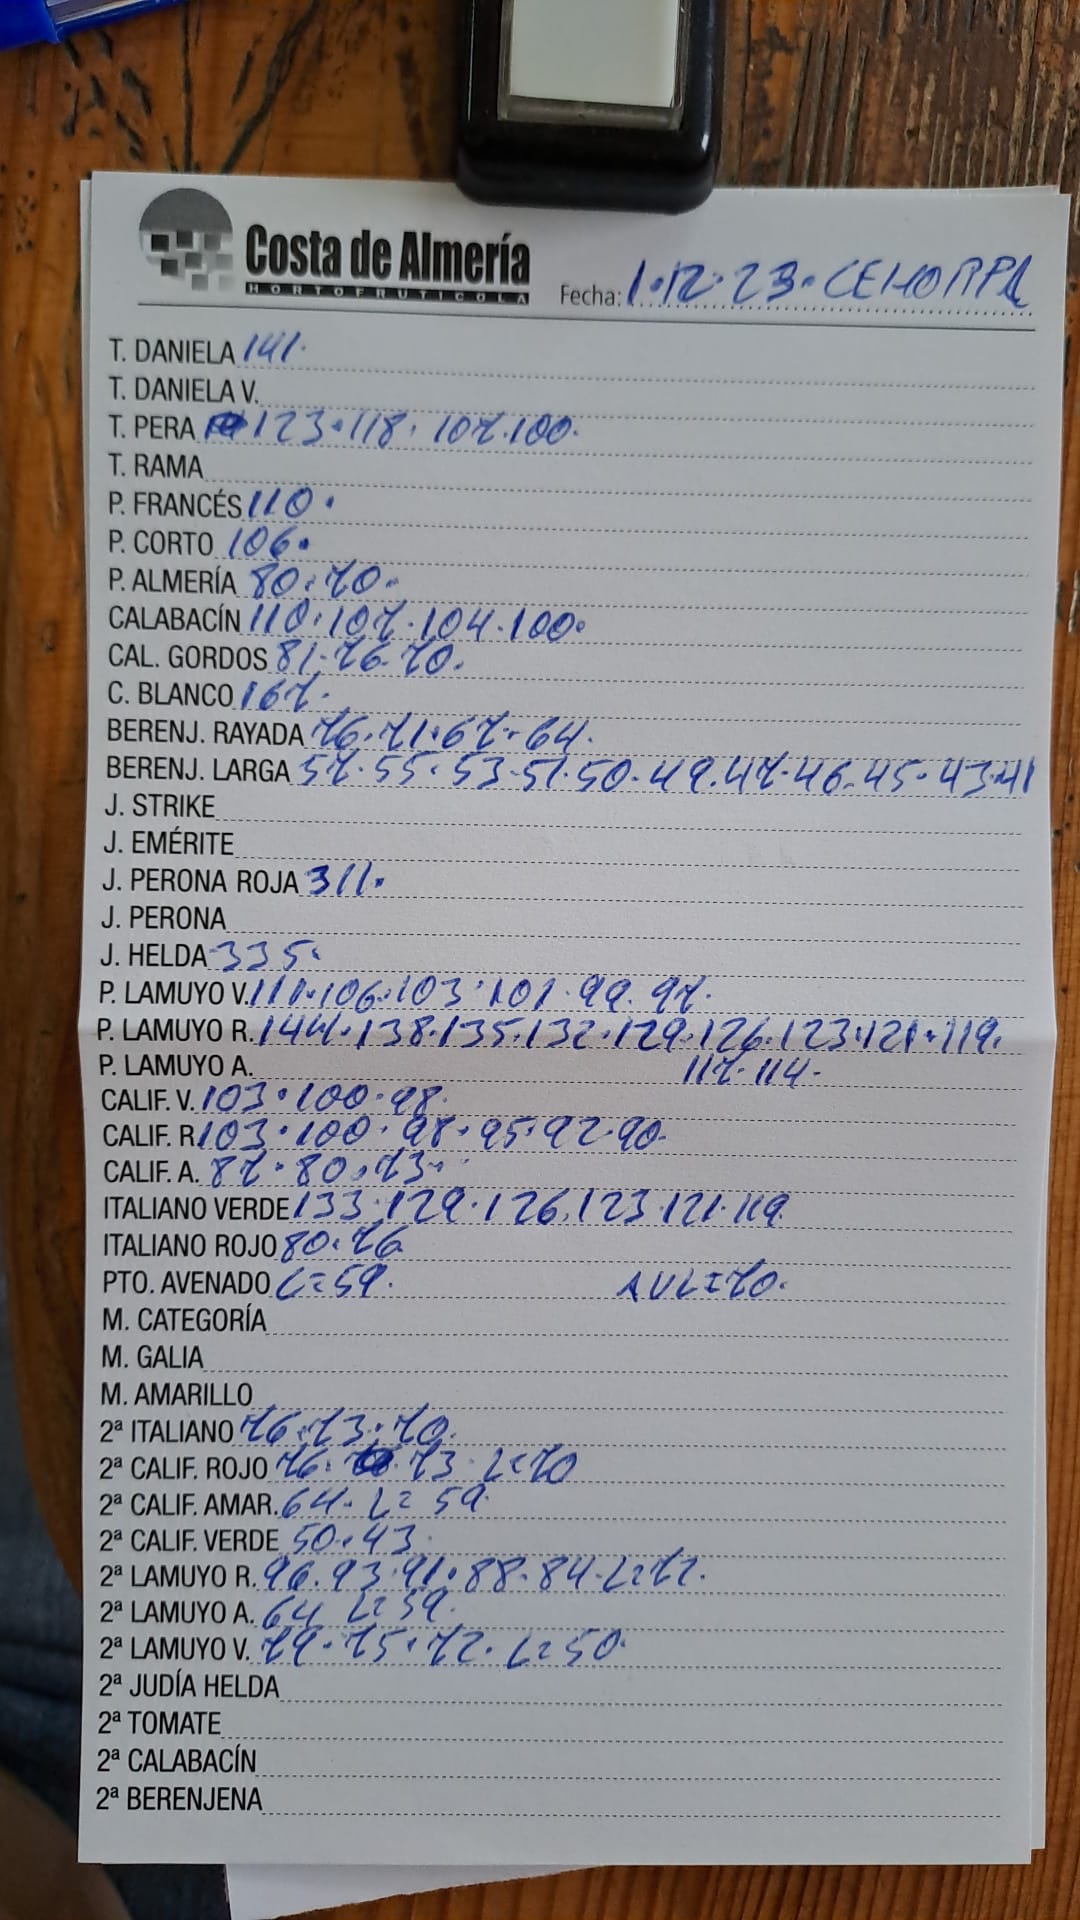 Costa de Almería
HORTOFRUTICOLA
Fecha: 1.12.23. CEHORPA
T. DANIELA 141.
T. DANIELA V.
T. PERA 123.118.107.100.
T. RAMA
P. FRANCÉS 110.
P. CORTO 106.
P. ALMERÍA 80.70.
CALABACÍN 110.107.104.100.
CAL. GORDOS 81.76.70.
C. BLANCO 167.
BERENJ. RAYADA 76.71.67.64.
BERENJ. LARGA 57.55.53.51.50.49.47.46.45.43.41
J. STRIKE
J. EMÉRITE
J. PERONA ROJA 311.
J. PERONA
J. HELDA 335.
P. LAMUYO V. 111.106.103.101.99.97.
P. LAMUYO R. 144.138.135.132.129.126.123.121.119.
P. LAMUYO A. 117.114.
CALIF. V. 103.100.98.
CALIF. R 103.100.98.95.92.90.
CALIF. A. 87.80.73.
ITALIANO VERDE 133.129.126.123.121.119.
ITALIANO ROJO 80.76
PTO. AVENADO L=59. AVL=70.
M. CATEGORÍA
M. GALIA
M. AMARILLO
2ª ITALIANO 76.73.70.
2ª CALIF. ROJO 76. 73. L=70
2ª CALIF. AMAR. 64. L=59.
2ª CALIF. VERDE 50.43.
2ª LAMUYO R. 96.93.91.88.84.L=72.
2ª LAMUYO A. 64 L=59.
2ª LAMUYO V. 79.75.72.L=50.
2ª JUDÍA HELDA
2ª TOMATE
2ª CALABACÍN
2ª BERENJENA